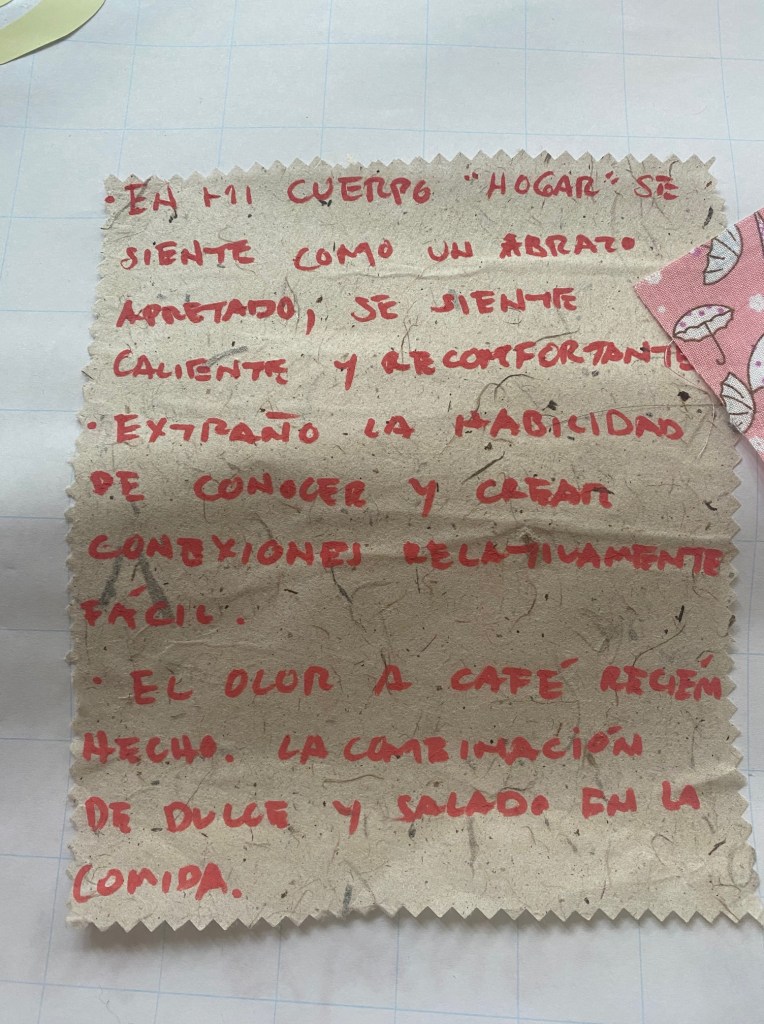 · EN MI CUERPO "HOGAR" SE
SIENTE COMO UN ABRAZO
APRETADO, SE SIENTE
CALIENTE Y RECOMFORTANTE
· EXTRAÑO LA HABILIDAD
DE CONOCER Y CREAR
CONEXIONES RELATIVAMENTE
FÁCIL.
· EL OLOR A CAFÉ RECIÉN
HECHO. LA COMBINACIÓN
DE DULCE Y SALADO EN LA
COMIDA.